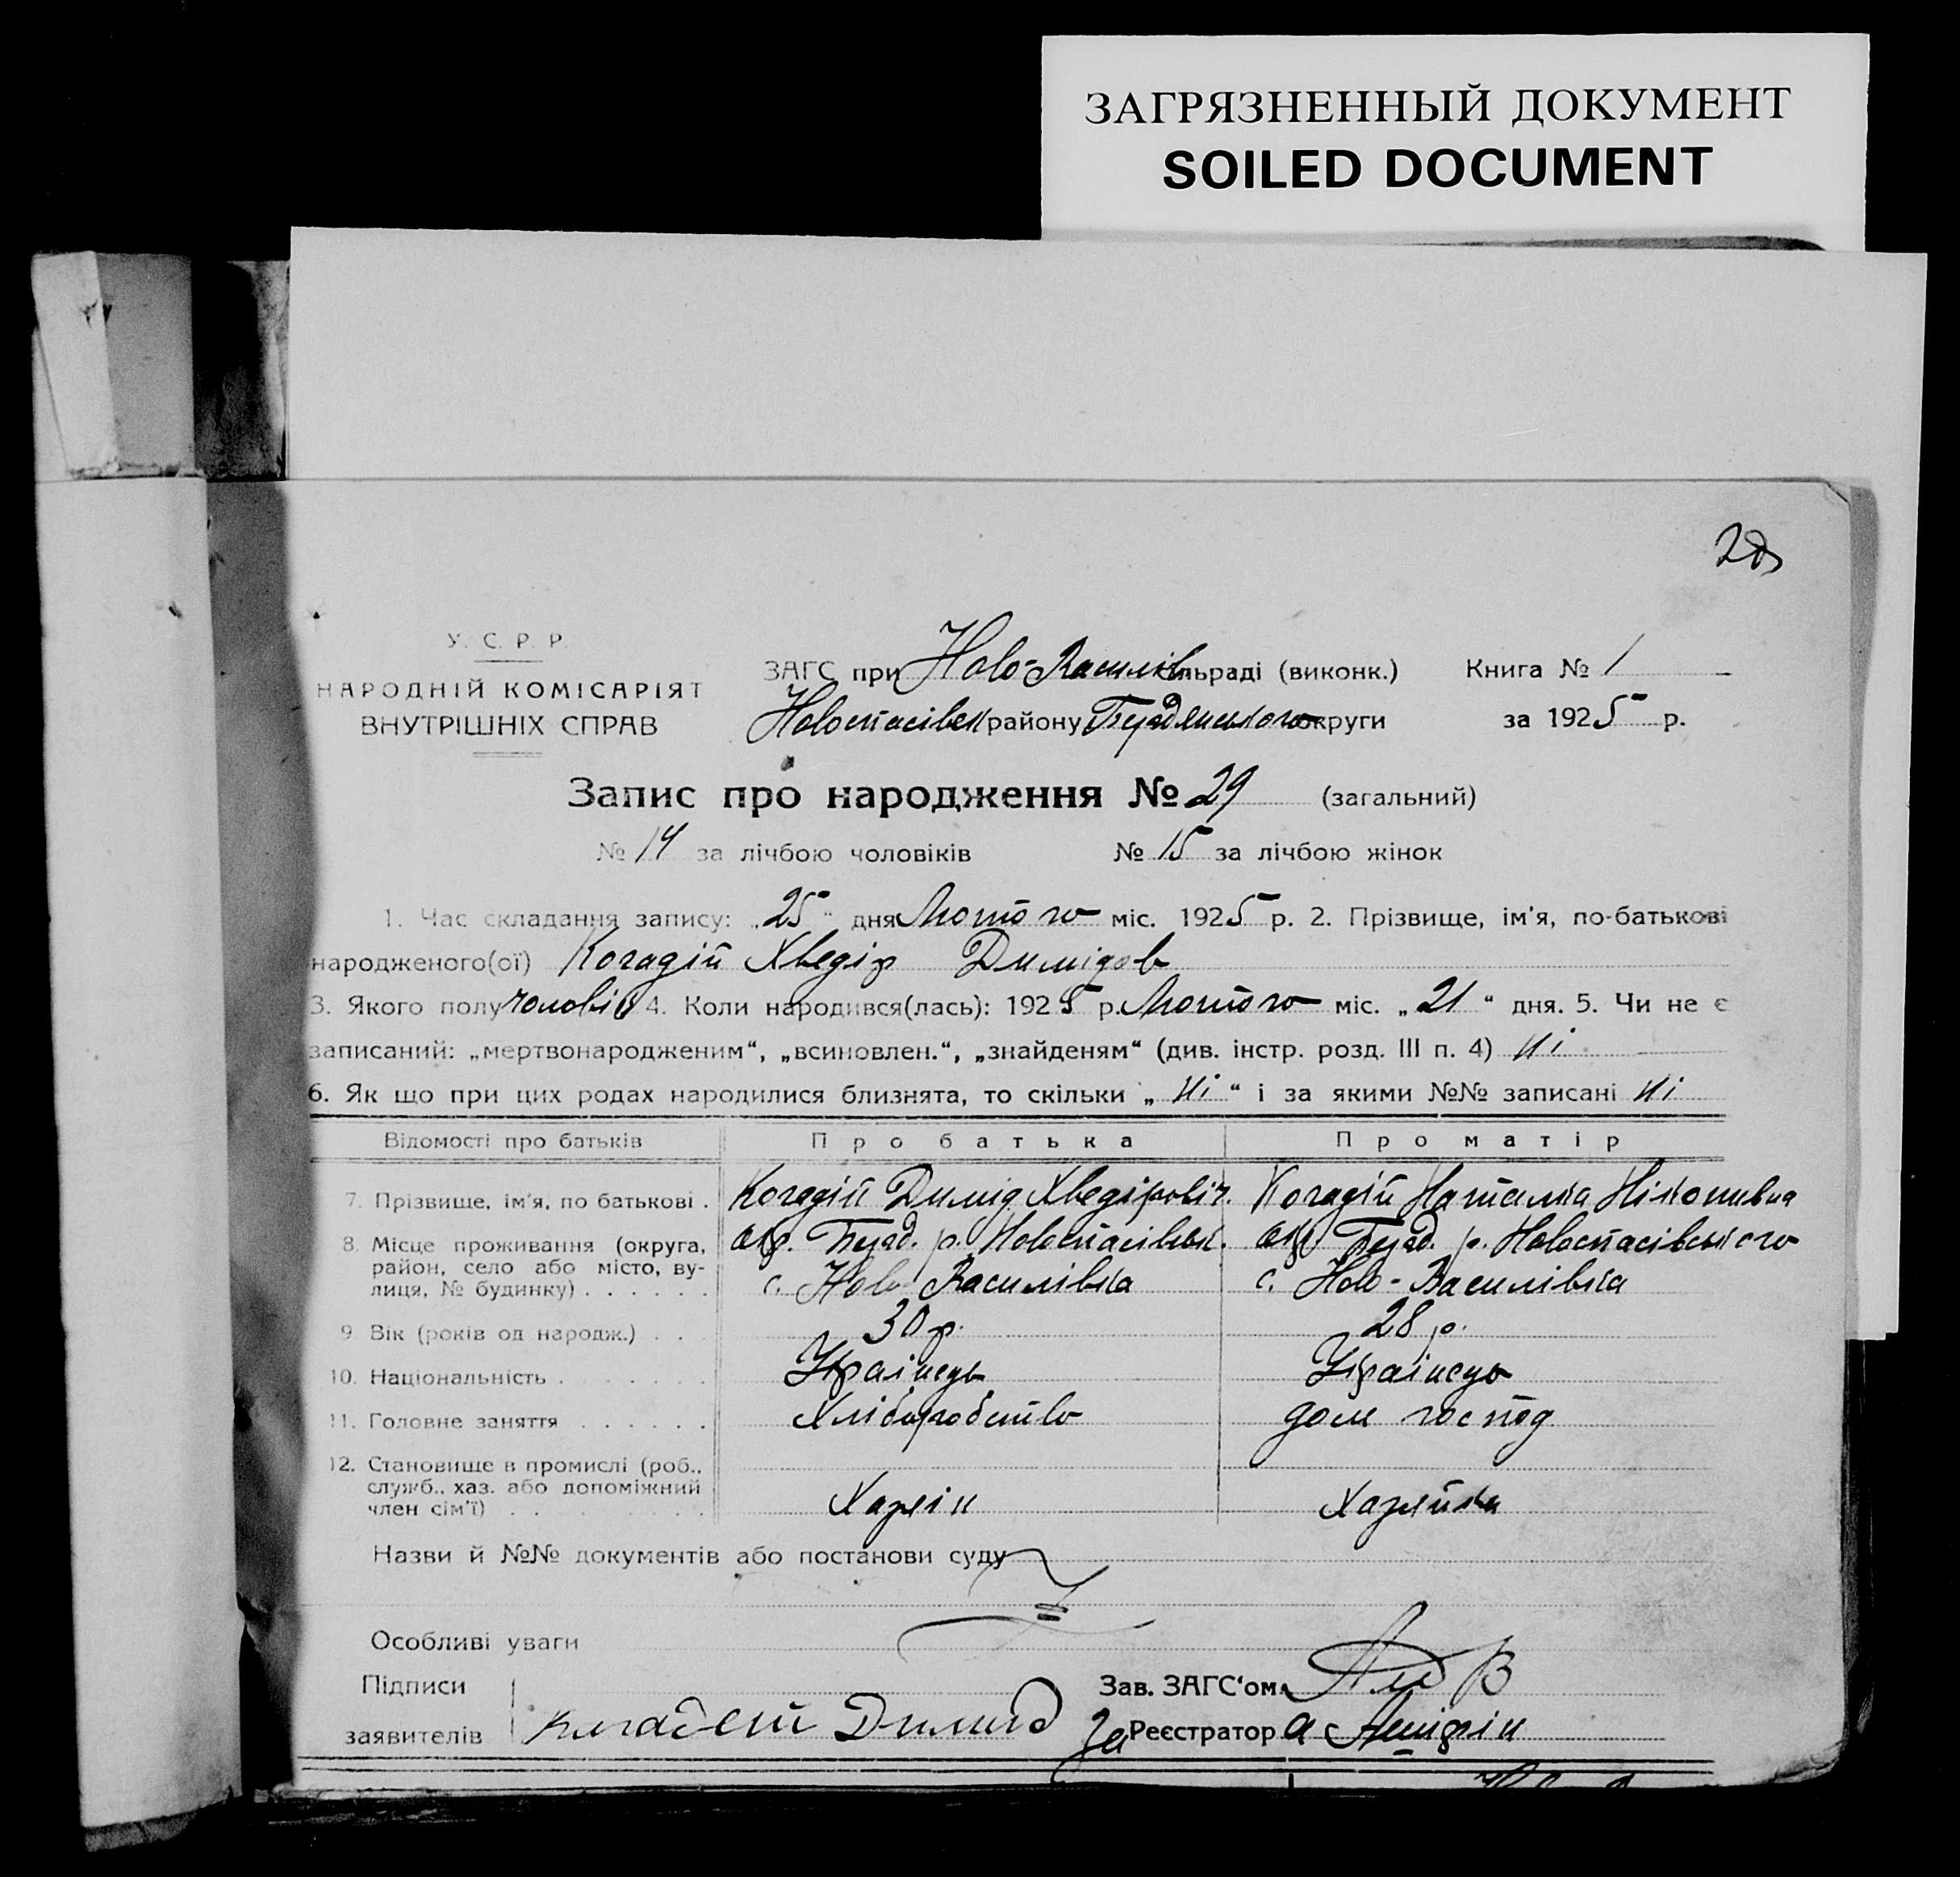 ЗАГРЯЗНЕННЫЙ ДОКУМЕНТ
SOILED DOCUMENT
28
У. С. Р. Р.
НАРОДНІЙ КОМІСАРІЯТ
ВНУТРІШНІХ СПРАВ
ЗАГС при Ново-Василів. сільраді (виконк.) Книга № 1
Новоспасівськ району Бердянського округи за 1925 р.
Запис про народження № 29 (загальний)
№ 14 за лічбою чоловіків № 15 за лічбою жінок
1. Час складання запису: „25“ дня Лютого міс. 1925 р. 2. Прізвище, ім'я, по-батькові
народженого(ої) Когадій Хведір Димідов
3. Якого полу чоловіч 4. Коли народився(лась): 1925 р. Лютого міс. „21“ дня. 5. Чи не є
записаний: „мертвонародженим“, „всиновлен.“, „знайденям“ (див. інстр. розд. III п. 4) ні
6. Як що при цих родах народилися близнята, то скільки „ні“ і за якими №№ записані ні
Відомості про батьків Про батька Про матір
7. Прізвище, ім'я, по батькові . Когадій Димід Хведірович. Когадій Наталка Ніконивна
8. Місце проживання (округа, район, село або місто, вулиця, № будинку) . . . . . . окр. Берд. р. Новоспасівськ. с. Ново-Василівка окр Берд. р. Новоспасівського с. Ново-Василівка
9. Вік (років од народж.) . . 30 р. 28 р.
10. Національність . . . . . . . Українець Українець
11. Головне заняття . . . . . . Хліборобство дом господ
12. Становище в промислі (роб., служб., хаз. або допоміжний член сім'ї) . . . . . . . Хазяін Хазяйка
Назви й №№ документів або постанови суду
Особливі уваги
Підписи Зав. ЗАГС'ом
заявителів Димид За Реєстратор а